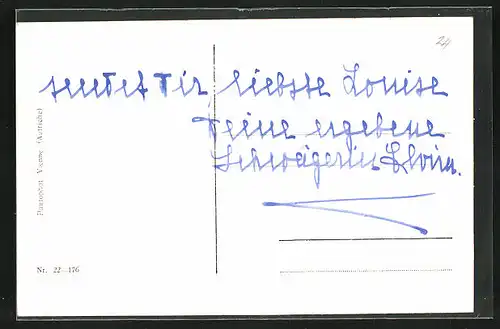 24
sendet Dir liebste Louise
Deine ergebene
Schwägerin Elvira.
Nr. 22—176